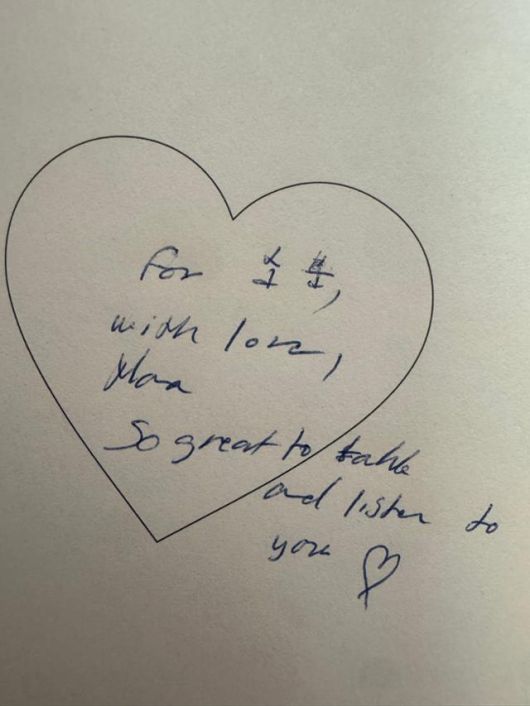 For
with love,
So great to talk
and listen to
you